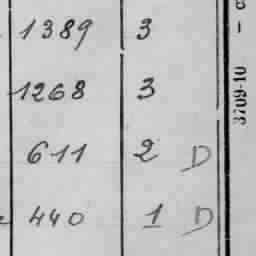 1389 3
1268 3
611 2 D
440 1 D
3709-10